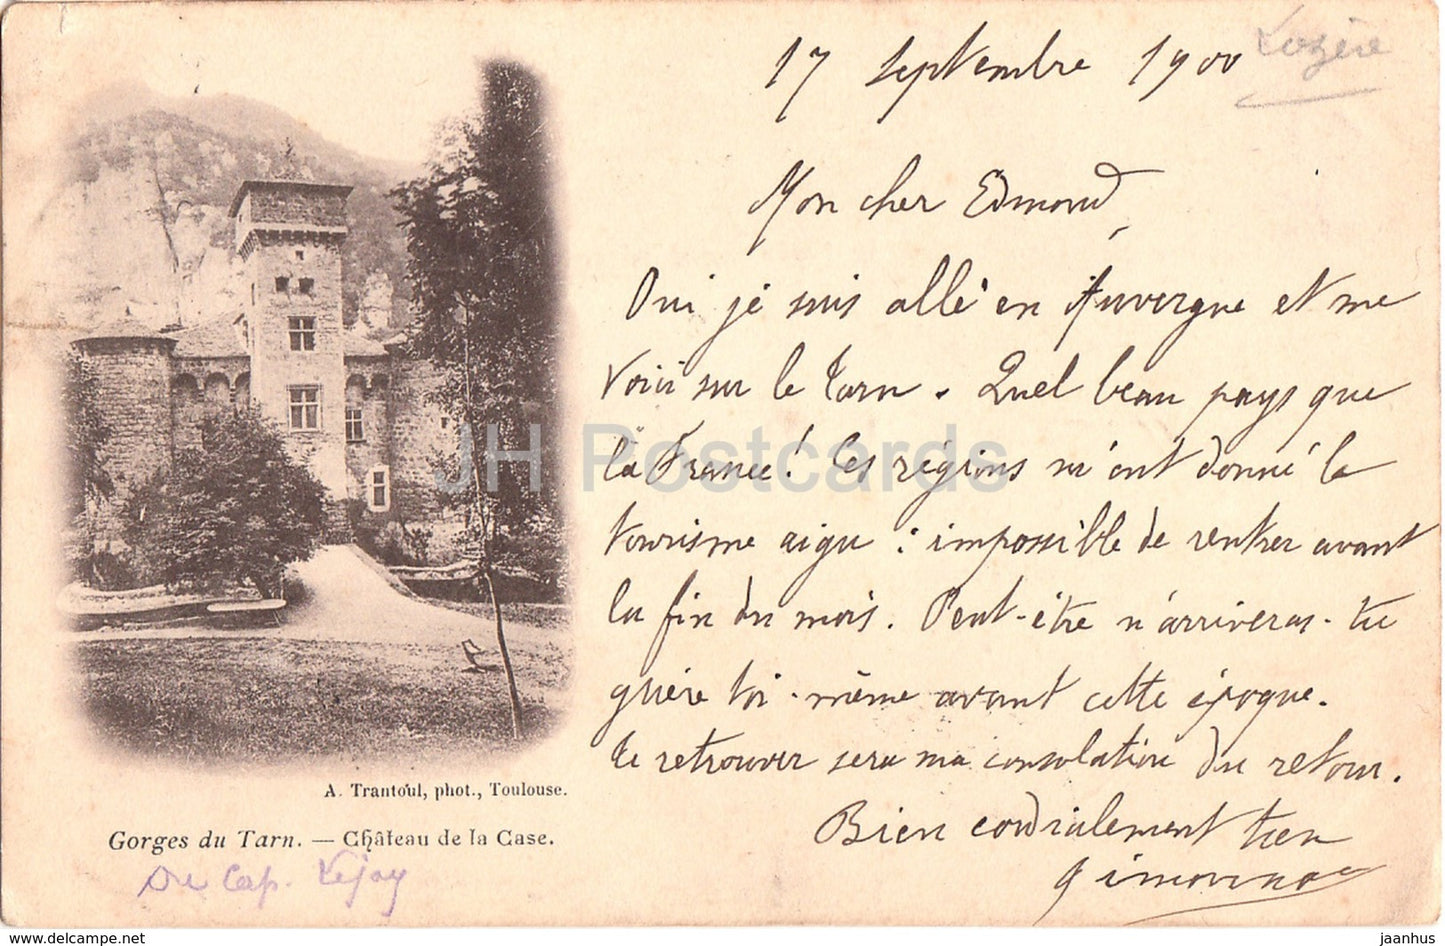 17 Septembre 1900
Lozère
Mon cher Edmond,
Oui je suis allé en Auvergne et me
voici sur le Tarn. Quel beau pays que
la France! Ces régions m'ont donné le
tourisme aigu : impossible de rentrer avant
la fin du mois. Peut-être n'arriveras-tu
guère toi-même avant cette époque.
Te retrouver sera ma consolation du retour.
Bien cordialement tien
JH Postcards
A. Trantoul, phot., Toulouse.
Gorges du Tarn. — Château de la Case.
Du Cap. Lejay
delcampe.net
jaanhus